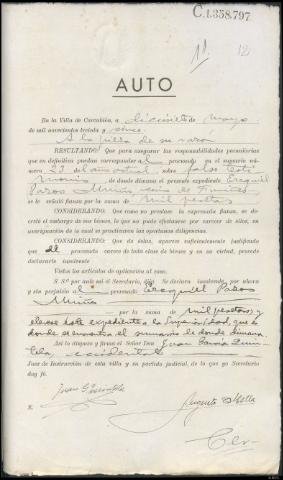 C.1.358.797
12
AUTO
En la Villa de Corcubión, a diecisiete de Mayo
de mil novecientos treinta y cinco.
A la pieza de su razón
RESULTANDO: Que para asegurar las responsabilidades pecuniarias
que en definitiva puedan corresponder al procesado en el sumario nú-
mero 23 del año actual, sobre
de donde dimana el presente expediente Ezequiel
Pazos Muiño, vecino de
se le señaló fianza por la suma de mil pesetas
CONSIDERANDO: Que como no prestase la expresada fianza, se de-
cretó el embargo de sus bienes, lo que no pudo efectuarse por carecer de ellos, en
averiguación de lo cual se practicaron las oportunas diligencias.
CONSIDERANDO: Que de éstas, aparece suficientemente justificado
que el procesado carece de toda clase de bienes y en su virtud, procede
declararle insolvente
Vistos los artículos de aplicación al caso.
S. Sª por ante mí el Secretario, dijo: Se declara insolvente por ahora
y sin perjuicio al procesado Ezequiel Pazos
Muiño
por la suma de mil pesetas; y
elévese este expediente a la Superioridad, que es
donde se encuentra el sumario de donde dimana
Así lo dispuso y firma el Señor Don Juan García
accidental
Juez de Instrucción de esta villa y su partido judicial, de lo que yo Secretario
doy fe.
Augusto